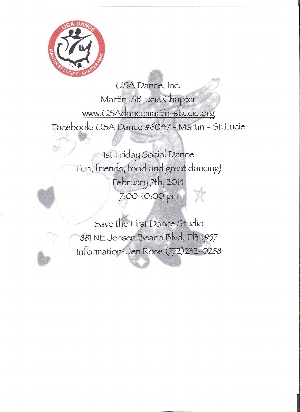 USA DANCE
USA Dance, Inc.
Martin - St. Lucie Chapter
Facebook: USA Dance #6047 - Martin - St. Lucie
1st Friday Social Dance
Fun, friends, food and great dancing!
February 7th, 2014
7:00-10:00 pm
Save the First Dance Studio
NE Jensen Beach Blvd,
Information: Jen Rose (772)